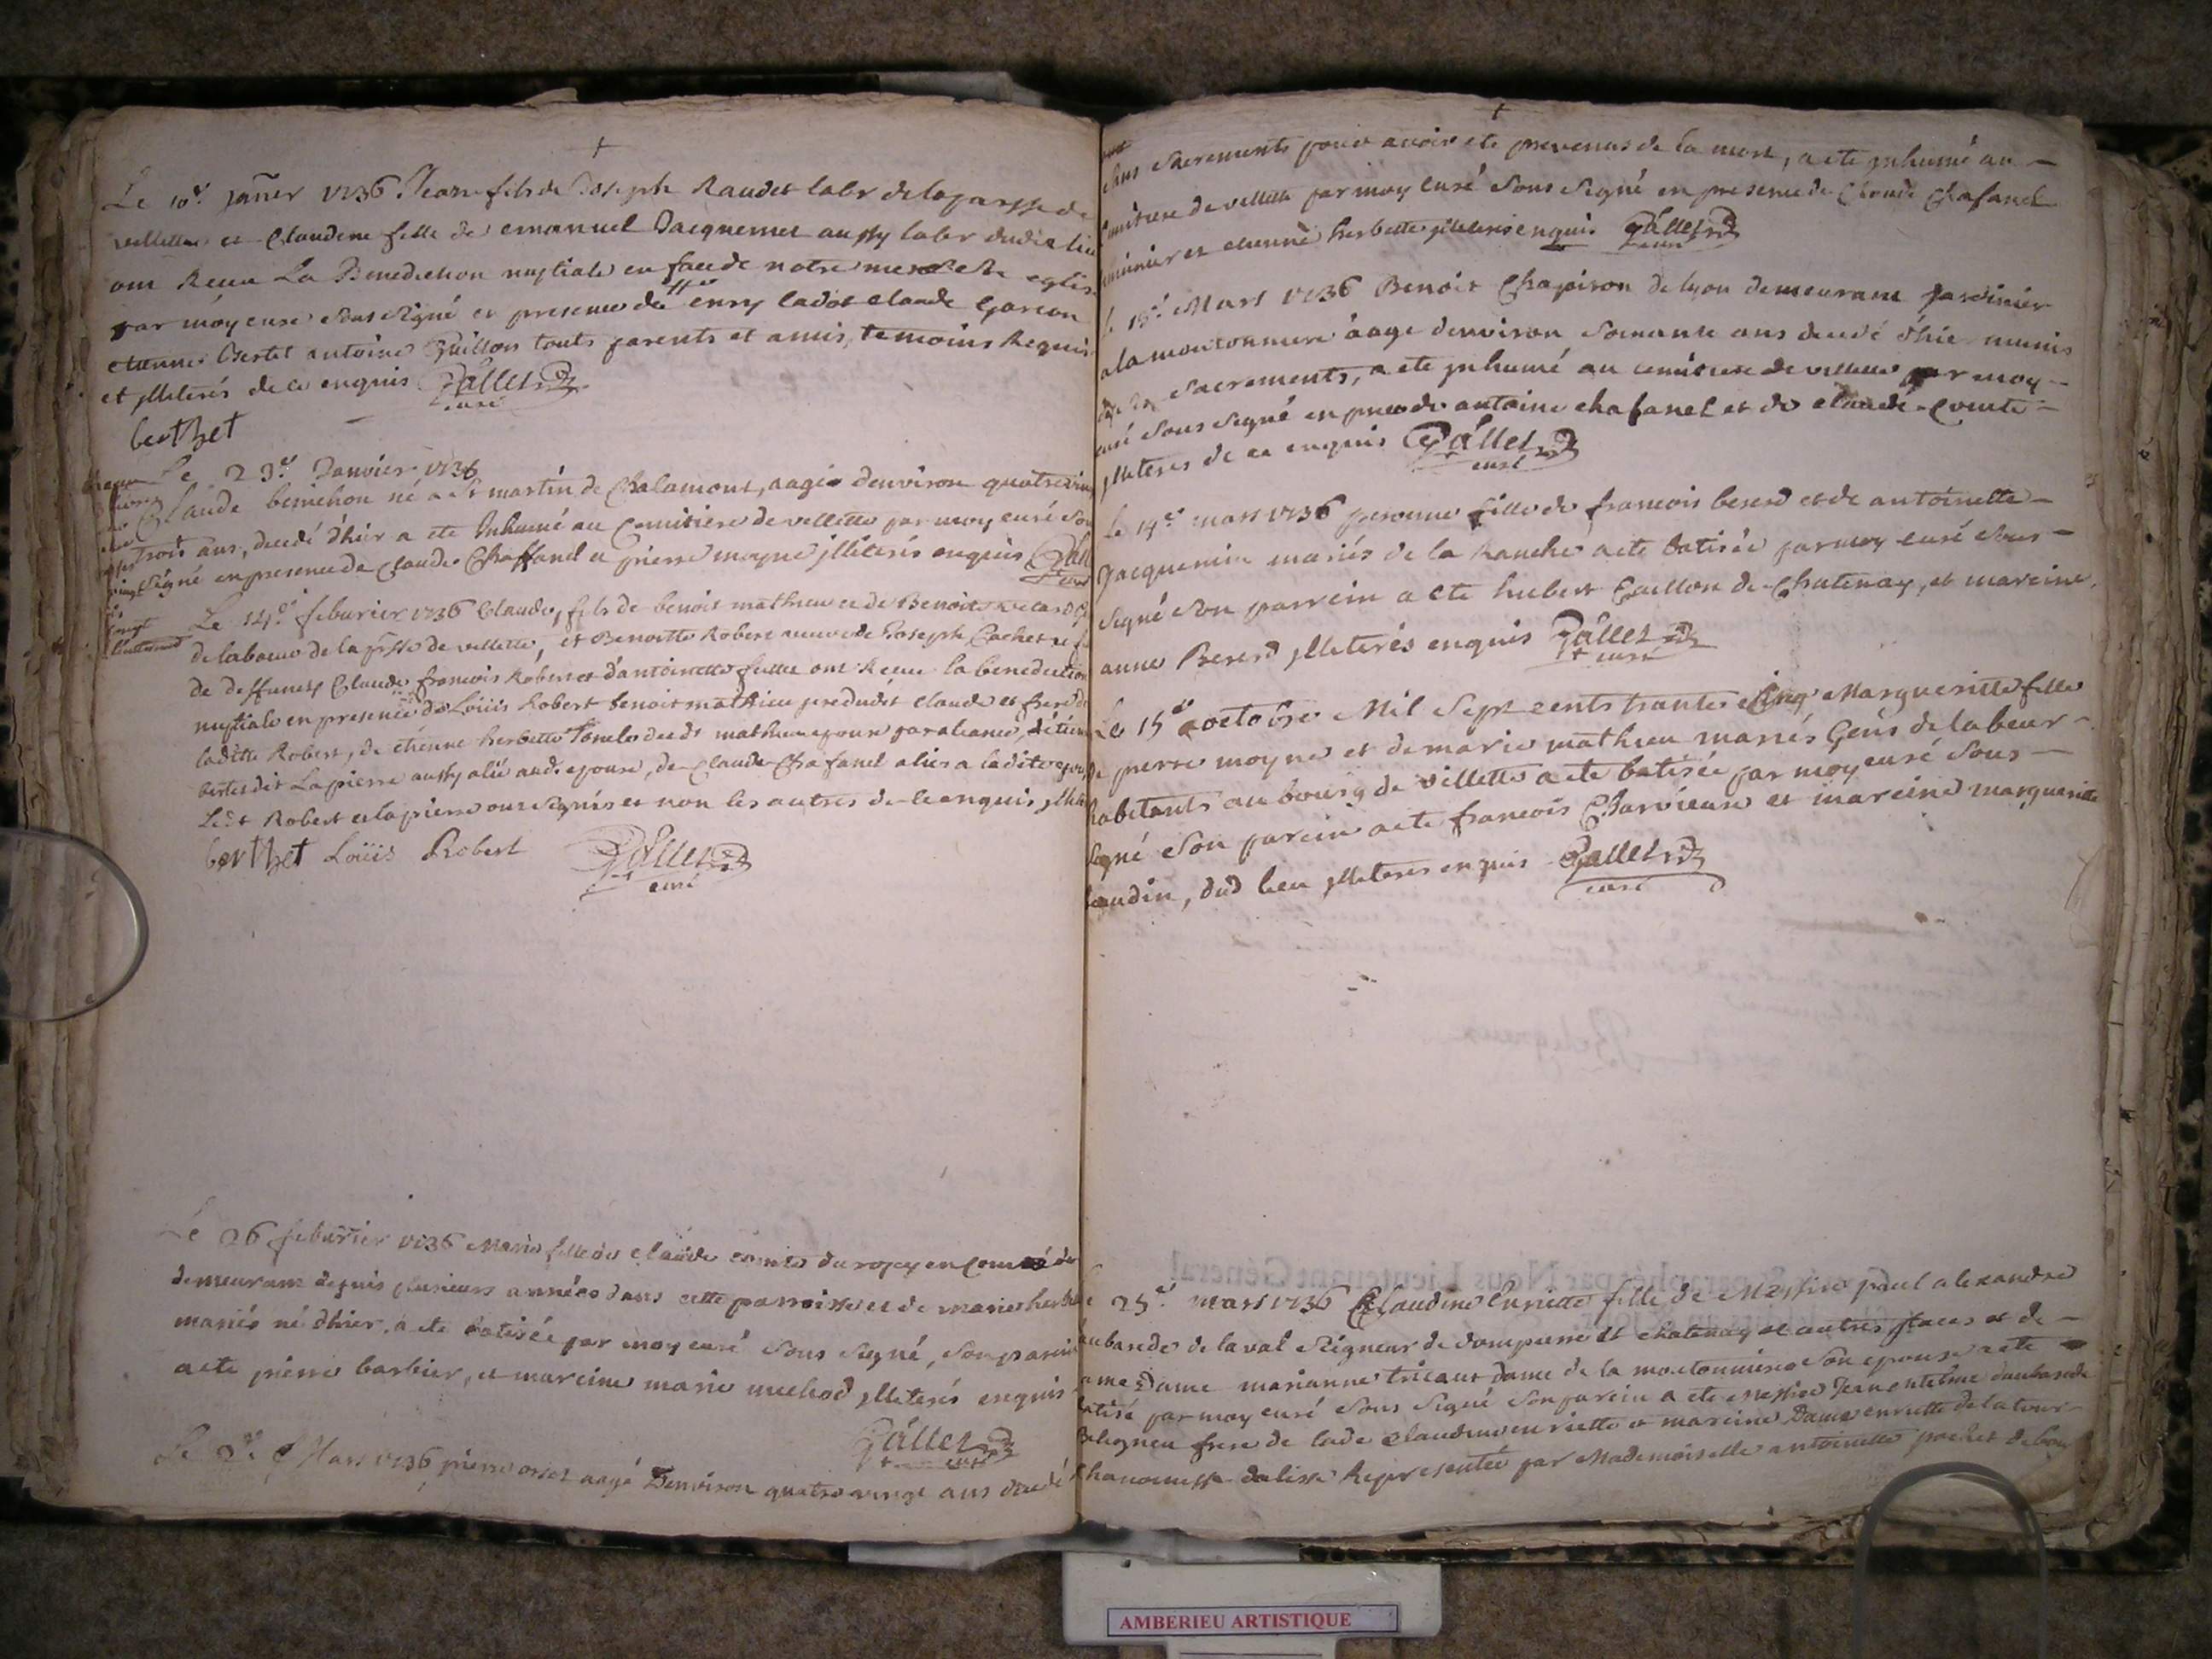 Le 10e janer 1736 Jean fils de Joseph Raudet labr de la parsse de
villette et Claudine fille de emanuel Jacquemet aussy labr dudit lieu
ont Receu La Benediction nuptiale en face de notre mere Ste eglise
par moy curé sous signé en presence de enry ladot claude Garcon
etienne Bertet antoine Guillon touts parents et amis, temoins Requis
et jlleterés de ce enquis Gallet
curé
berthet
Le 23e Janvier 1736
Claude né a St martin de Chalamont, aagé denviron quatrevint
trois ans, decedé d'hier a ete Inhumé au Cemitiere de villette par moy curé sous
signé en presence de Claude Chaffanel et pierre moyne jlleterés enquis Gallet
curé
Le 14e feburier 1736 Claude, fils de benoit mathieu et de Benoite
de labeur de la prsse de villette, et Benoitte Robert veuve de Joseph Cochet
de deffuncts Claude francois Robert et d'antoinette ont Receu la benediction
nuptiale en presence de Loüis Robert benoit mathieu pere dudit claude et frere de
laditte Robert, de etienne herbette oncle dudt mathieu epoux par aliance, d'etienne
bertet dit Lapierre aussy alié audit epoux, de Claude Chafanel aliés a ladite epouse
Ledt Robert et lapierre ont signés et non les autres de ce enquis jlleterés
berthet Loüis Robert Gallet
curé
Le 26 feburier 1736 Marie fille de claude comte du en comté de
demeurant depuis plusieurs années dans cette parroisse et de marie herbette
mariés né d'hier, a ete batisée par moy curé sous signé, son parein
a ete pierre barbier, et mareine marie michod jlleterés enquis
Gallet
curé
Le 2e Mars 1736 pierre orset aagé Denviron quatrevingt ans decedé
sans sacrements pour avoir ete prevenus de la mort, a ete jnhumé au
cemitiere de villette par moy curé sous signé en presence de Claude Chafanel
et etienne herbette jlleterés enquis Gallet
curé
le 15e Mars 1736 Benoit Chapiron de lyon demeurant jardinier
a la moutonniere aagé denviron soixante ans decedé d'hier munis
de Sacrements, a ete jnhumé au cemitiere de villette par moy
curé sous signé en pnce de antoine chafanel et de claude Comte
jlleterés de ce enquis Gallet
curé
Le 19e mars 1736 fille de francois bererd et de antoinette
Jacquemin mariés de la Ranche a ete batisée par moy curé sous
signé son parrein a ete hubert Guillon de Chatenay, et mareine
anne Bererd jlleterés enquis Gallet
curé
Le 15e octobre Mil Sept cents trante cinq Margueritte fille
de pierre moyne et de marie mathieu mariés Gens de labeur
habitants au bourg de villette a ete batisée par moy curé sous
signé son parein a ete francois Charvieux et mareine margueritte
baudin, dud lieu jlleterés enquis Gallet
curé
le 25e mars 1736 Claudine Enriette fille de Messire paul alexandre
daubarede de laval Seigneur de dompierre et chatenay et autres places et de
dame Dame marianne tricaut dame de la moutonniere son epouse a ete
batisé par moy curé sous signé son parein a ete messire Jean entelme daubarede
Belegneu frere de lade claudine enriette et mareine Dame enriette de la tour
Chanoinesse dalisse Representée par Mademoiselle antoinette
AMBERIEU ARTISTIQUE